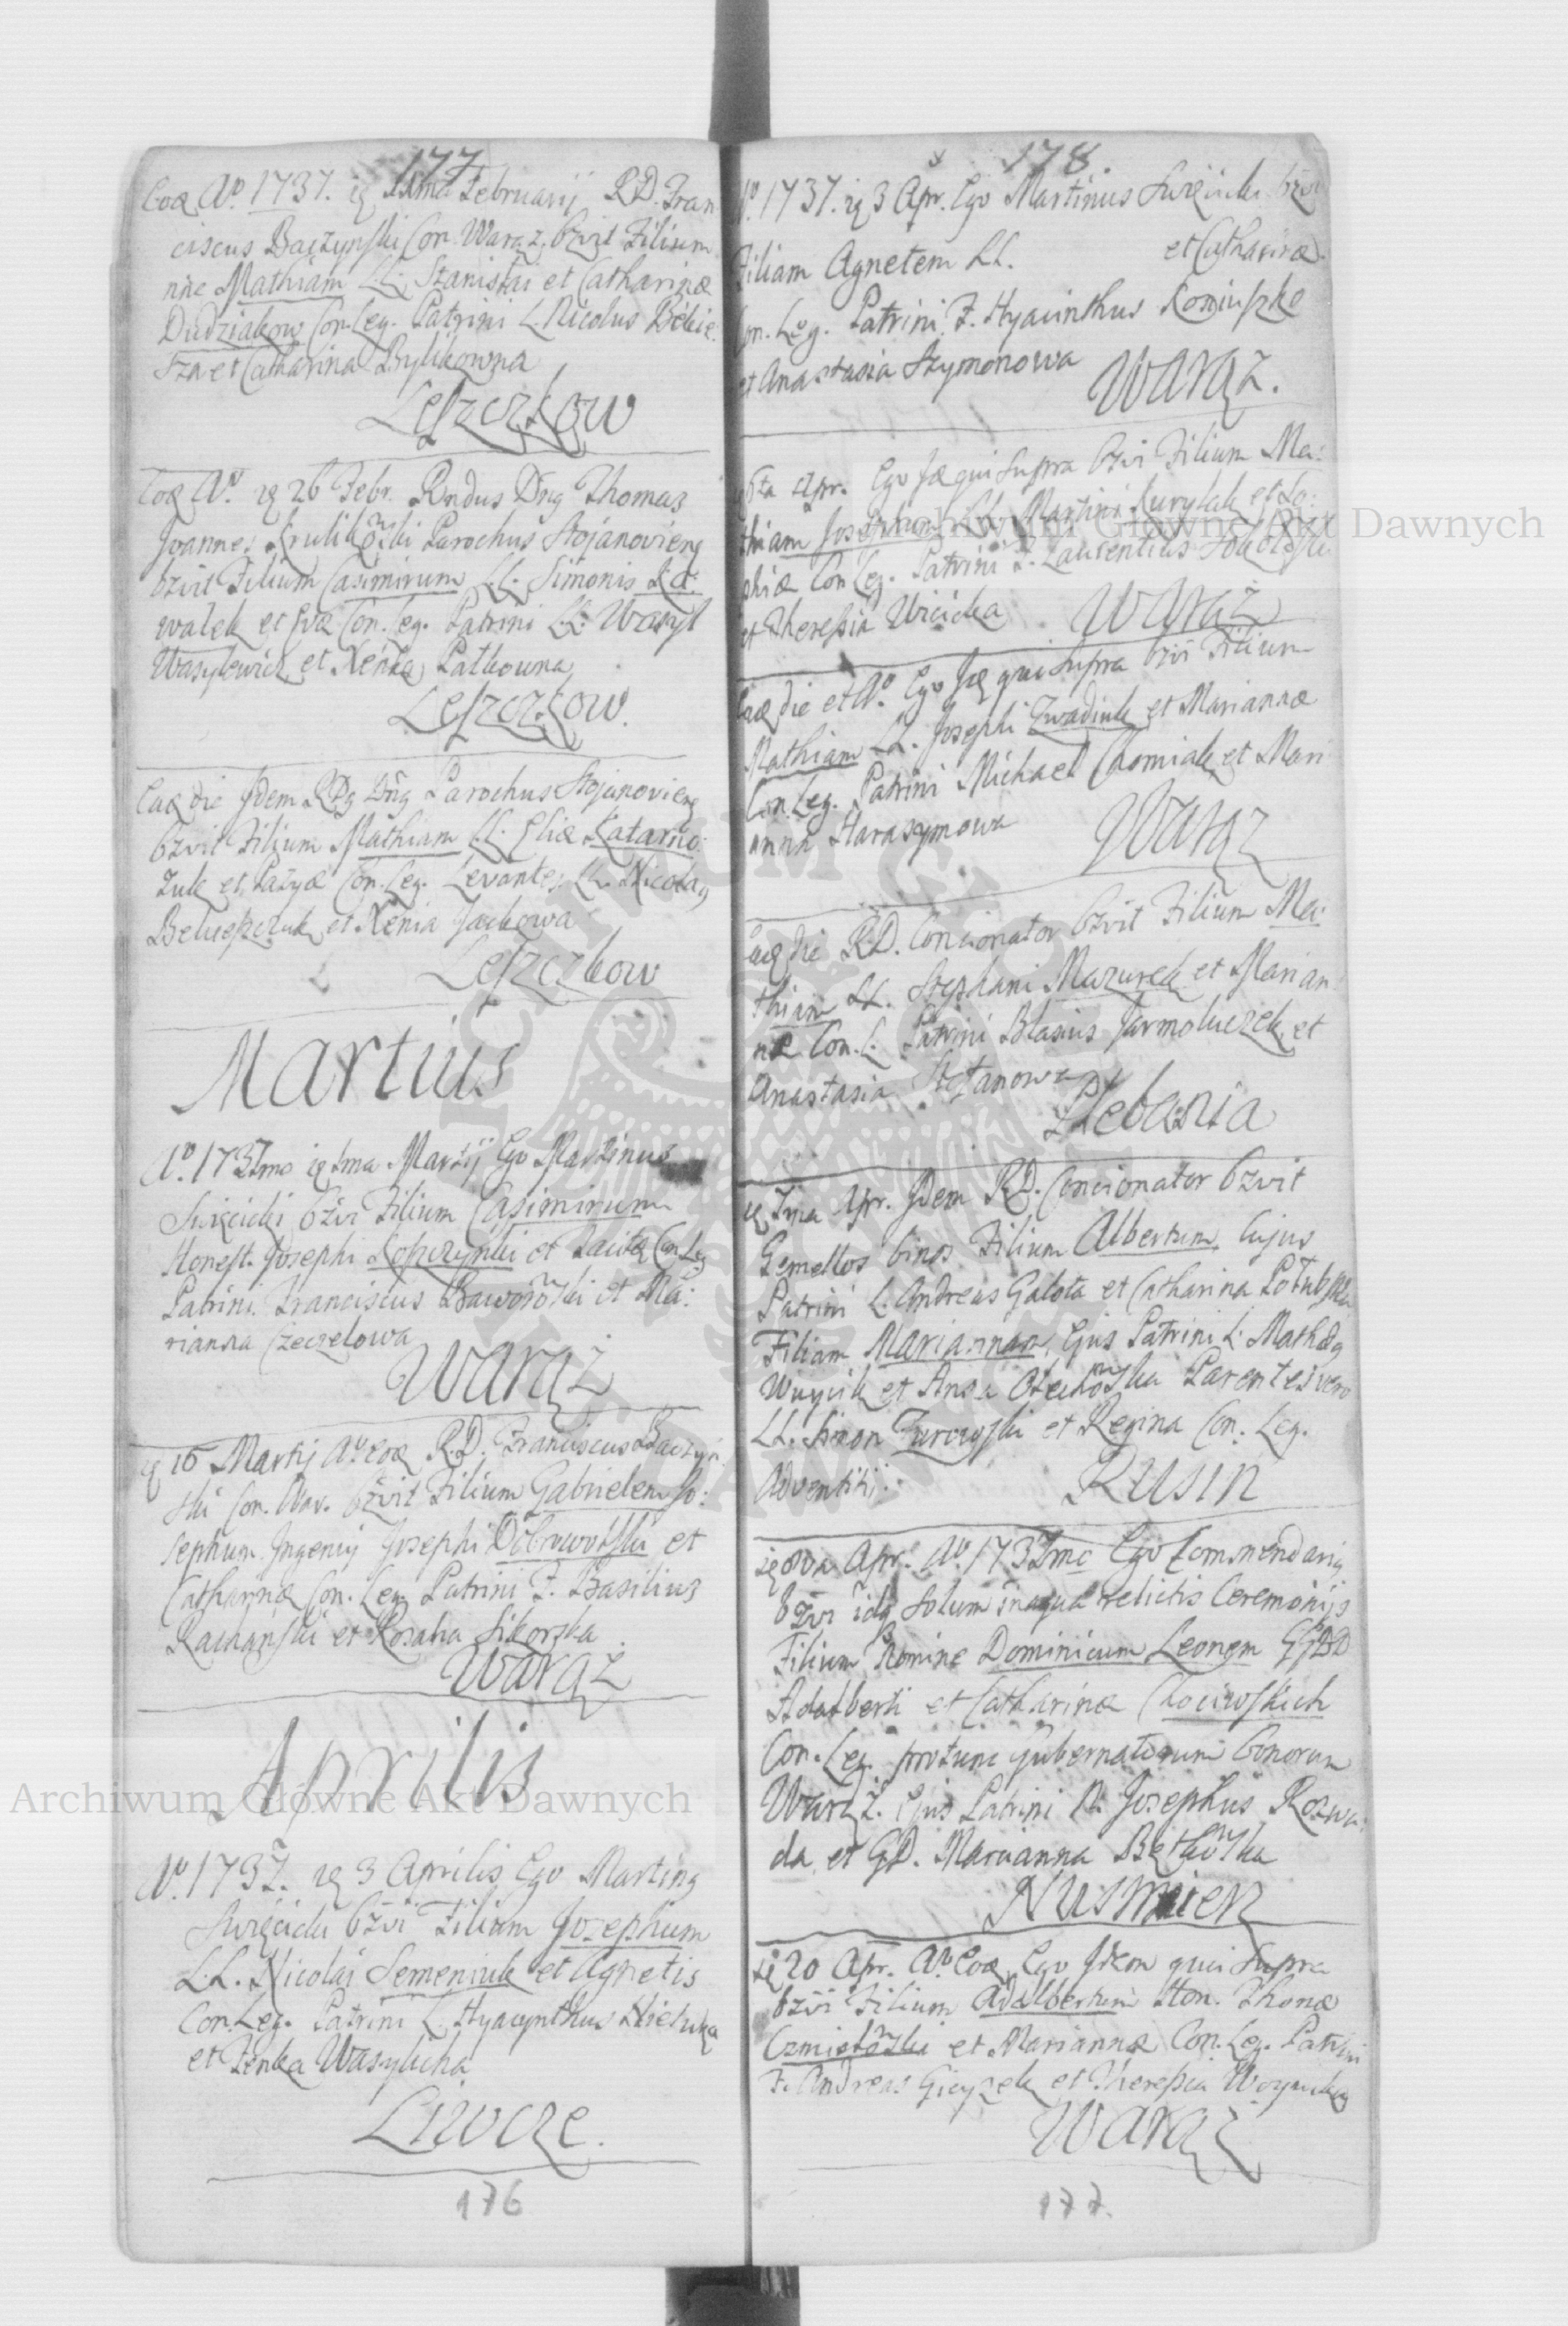 177
Eod Aº. 1737. Februarij R.D. Fran
ciscus Baczynski Con. Waraz. bzvit Filium
nne Mathiam LL. Stanislai et Catharinæ
Dudziakow Con. Leg. Patrini L. Nicolus Bekie
sza et Catharina Bylikowna
Leszczkow
Eod Aº. 26 Febr. Rndus Dng Thomas
Joannes Krulikowski Parochus Stojanovieng
bzvit Filium Casimirum LL. Simonis Ka:
walek et Evæ Con. Leg. Patrini LL. Wasyl
Wasylewicz et Xenka Patkowna
Leszczkow.
Eadem die Jdem Dng Parochus Stojanovieng
bzvit Filium Mathiam LL. Eliæ Katarno:
zuk et Pazyæ Con. Leg. Levantes LL. Nicolag
Belueszczuk et Xenia Jackowa
Leszczkow
Martius
Aº. 1737mo 1ma Martij Ego Martinus
Swięcicki bzvi Filium Casimirum
Honest. Josephi Lopuzynski et Con. Leg
Patrini Franciscus Baworowski et Ma:
rianna Czeczelowa
Waraz
16 Martij Aº. Eod R.D. Franciscus Baczyn
ski Con. War. bzvit Filium Gabrielem Jo:
sephum Ingenij Josephi Dobrowolski et
Catharinæ Con. Leg. Patrini F. Basilius
Rachanski et Rosalia Sikorska
Waraz
Aprilis
Aº. 1737. 3 Aprilis Ego Marting
Swięcicki bzvi Filium Josephum
LL. Nicolai Semeniuk et Agnetis
Con. Leg. Patrini L. Hyacynthus
et Zenka Wasylicha
Liwcze.
176
178.
Aº. 1737. 3 Apr. Ego Martinus Swięcicki bzvi
Filiam Agnetem LL. et Catharinæ
Con. Leg. Patrini F. Hyacinthus Kosciuszko
et Anastasia Szymonowa
Waraz.
6ta Apr. Ego qui supra bzvi Filium Ma:
thiam Josephum LL. Martini Kurylak et So:
phiæ Con. Leg. Patrini F. Laurentius
et Theressia Wicicka
Waraz
Eadem die et Aº. Ego qui supra bzvi Filium
Mathiam LL. Josephi Zwadiuk et Mariannæ
Con. Leg. Patrini Michael Chomiak et Mari
anna Harasymowa
Waraz
Eadem die R.D. Concionator bzvit Filium Ma:
thiam LL. Stephani Mazurek et Marian
næ Con. L. Patrini Blasius Jarmoluczek et
Anastasia Stefanowa
Plebania
7ma Apr. Jdem R.D. Concionator bzvit
Gemellos binos Filium Albertum, Cujus
Patrini L. Andreas Galota et Catharina
Filiam Mariannam, Ejus Patrini L. Mathæg
Wuycik et Anna Parentes vero
LL. Simon Zurowski et Regina Con. Leg.
Adventitii.
Rusin
8va Apr. Aº. 1737mo Ego Commendarig
bzvi solum in aqua relictis Ceremonijs
Filium Nomine Dominicum Leonem GGDD
Adalberti et Catharinæ Chociwskich
Con. Leg. protunc gubernatorum bonorum
Waraz. Ejus Patrini N. Josephus Rozwa:
da et GD. Marianna Bełkowska
Nusmierz
20 Apr. Aº. Eod Ego Jdem qui supra
bzvi Filium Adalbertum Hon. Thomæ
Czmielowski et Mariannæ Con. Leg. Patrini
F. Andreas Gicyzek et Theressia
Waraz
177.
Archiwum Główne Akt Dawnych
Archiwum Główne Akt Dawnych